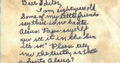 Dear Editor,
I am eight years old.
Some of my little friends
say that is no Santa
Claus. Papa says, "If
you see it in The Sun
it's so." Please tell
me the truth, is there
a Santa Claus?